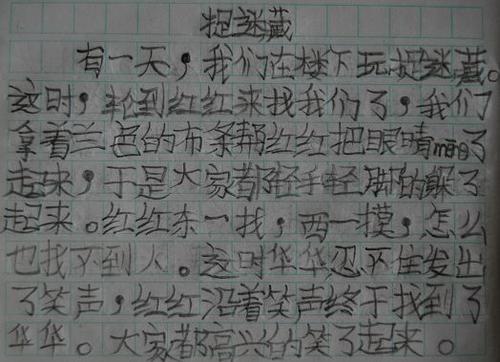 捉迷藏
有一天，我们在楼下玩捉迷藏。
这时，轮到红红来找我们了，我们
拿着兰色的布条帮红红把眼睛meng了
起来，于是大家都轻手轻脚的躲了
起来。红红东一找，西一摸，怎么
也找不到人。这时华华忍不住发出
了笑声，红红沿着笑声终于找到了
华华。大家都高兴的笑了起来。